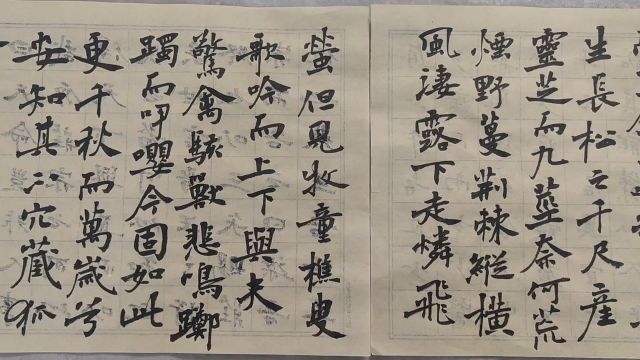 生長松之千尺產
靈芝而九莖奈何荒
煙野蔓荊棘縱橫
風淒露下走憐飛
螢但見牧童樵叟
歌吟而上下與夫
驚禽駭獸悲鳴躑
躅而吚嚶今固如此
更千秋而萬歲兮
安知其不穴藏狐